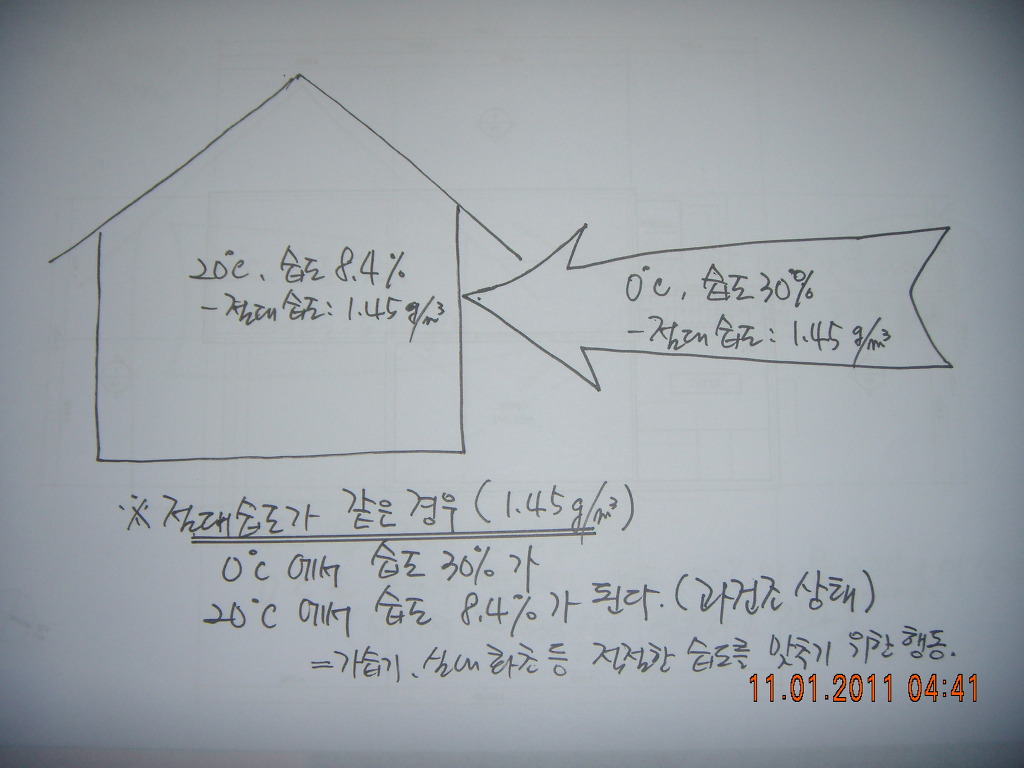 20℃, 습도 8.4%
- 절대습도: 1.45 g/m³
0℃, 습도 30%
- 절대습도: 1.45 g/m³
※ 절대습도가 같은 경우 (1.45g/m³)
0℃ 에서 습도 30%가
20℃ 에서 습도 8.4%가 된다. (과건조 상태)
= 가습기, 실내 화초 등 적절한 습도를 맞추기 위한 행동.
11.01.2011 04:41